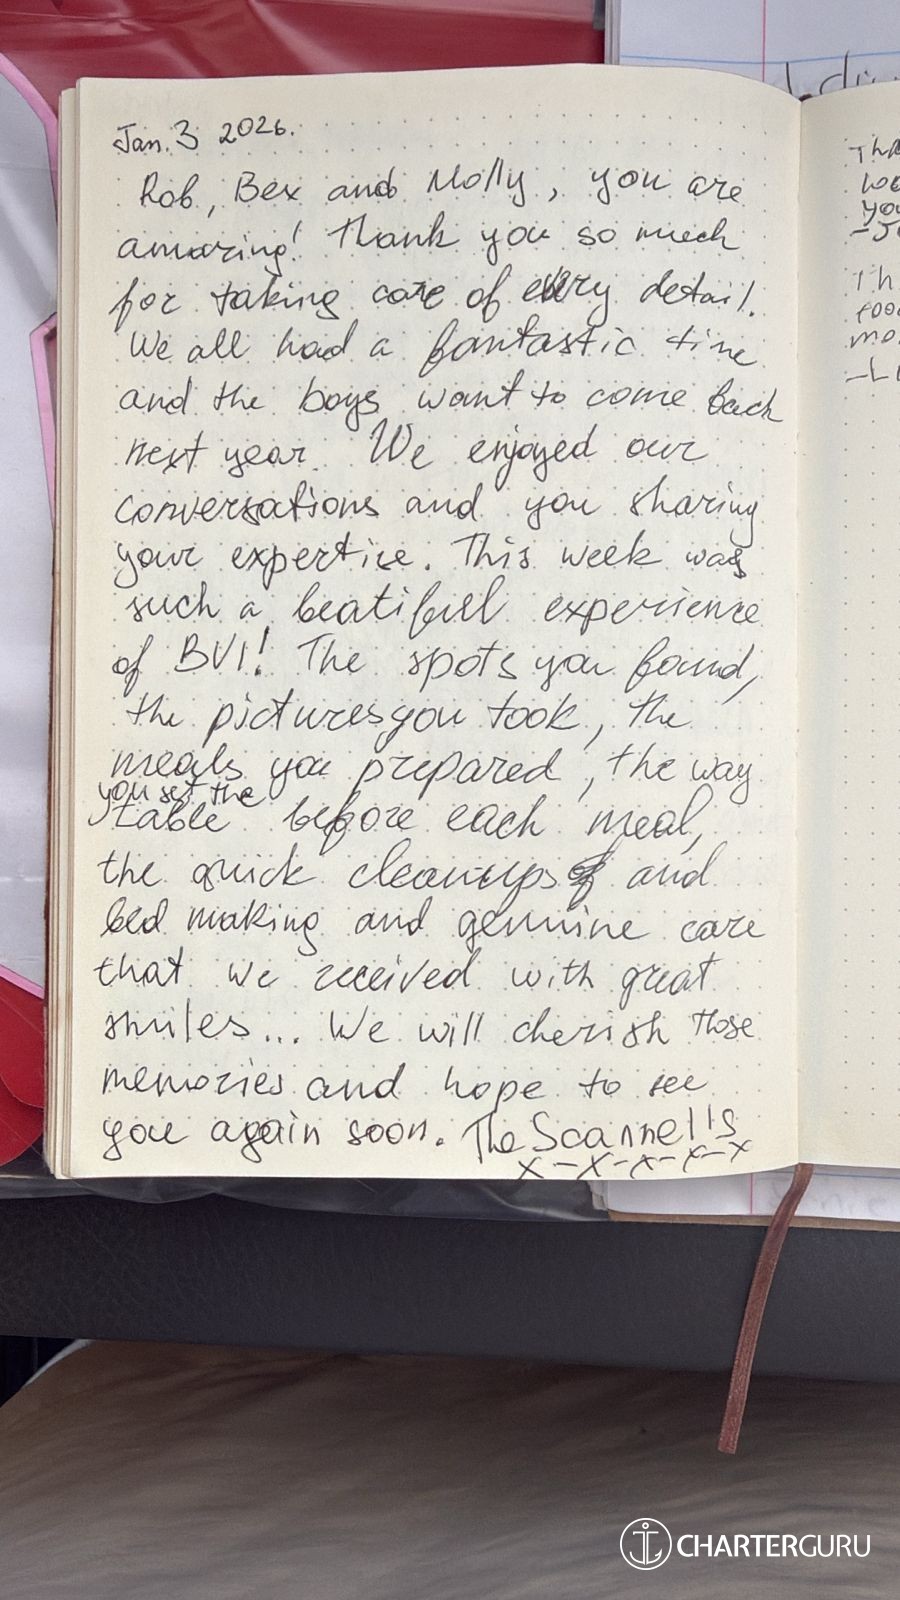 Jan. 3 2026.
Rob, Bex and Molly, you are
amazing! Thank you so much
for taking care of every detail.
We all had a fantastic time
and the boys want to come back
next year. We enjoyed our
conversations and you sharing
your expertise. This week was
such a beatifull experience
of BVI! The spots you found,
the pictures you took, the
meals you prepared, the way
you set the
table before each meal,
the quick cleanups and
bed making and genuine care
that we received with great
smiles... We will cherish those
memories and hope to see
you again soon. The Scannells
x - x - x - x - x
CHARTERGURU